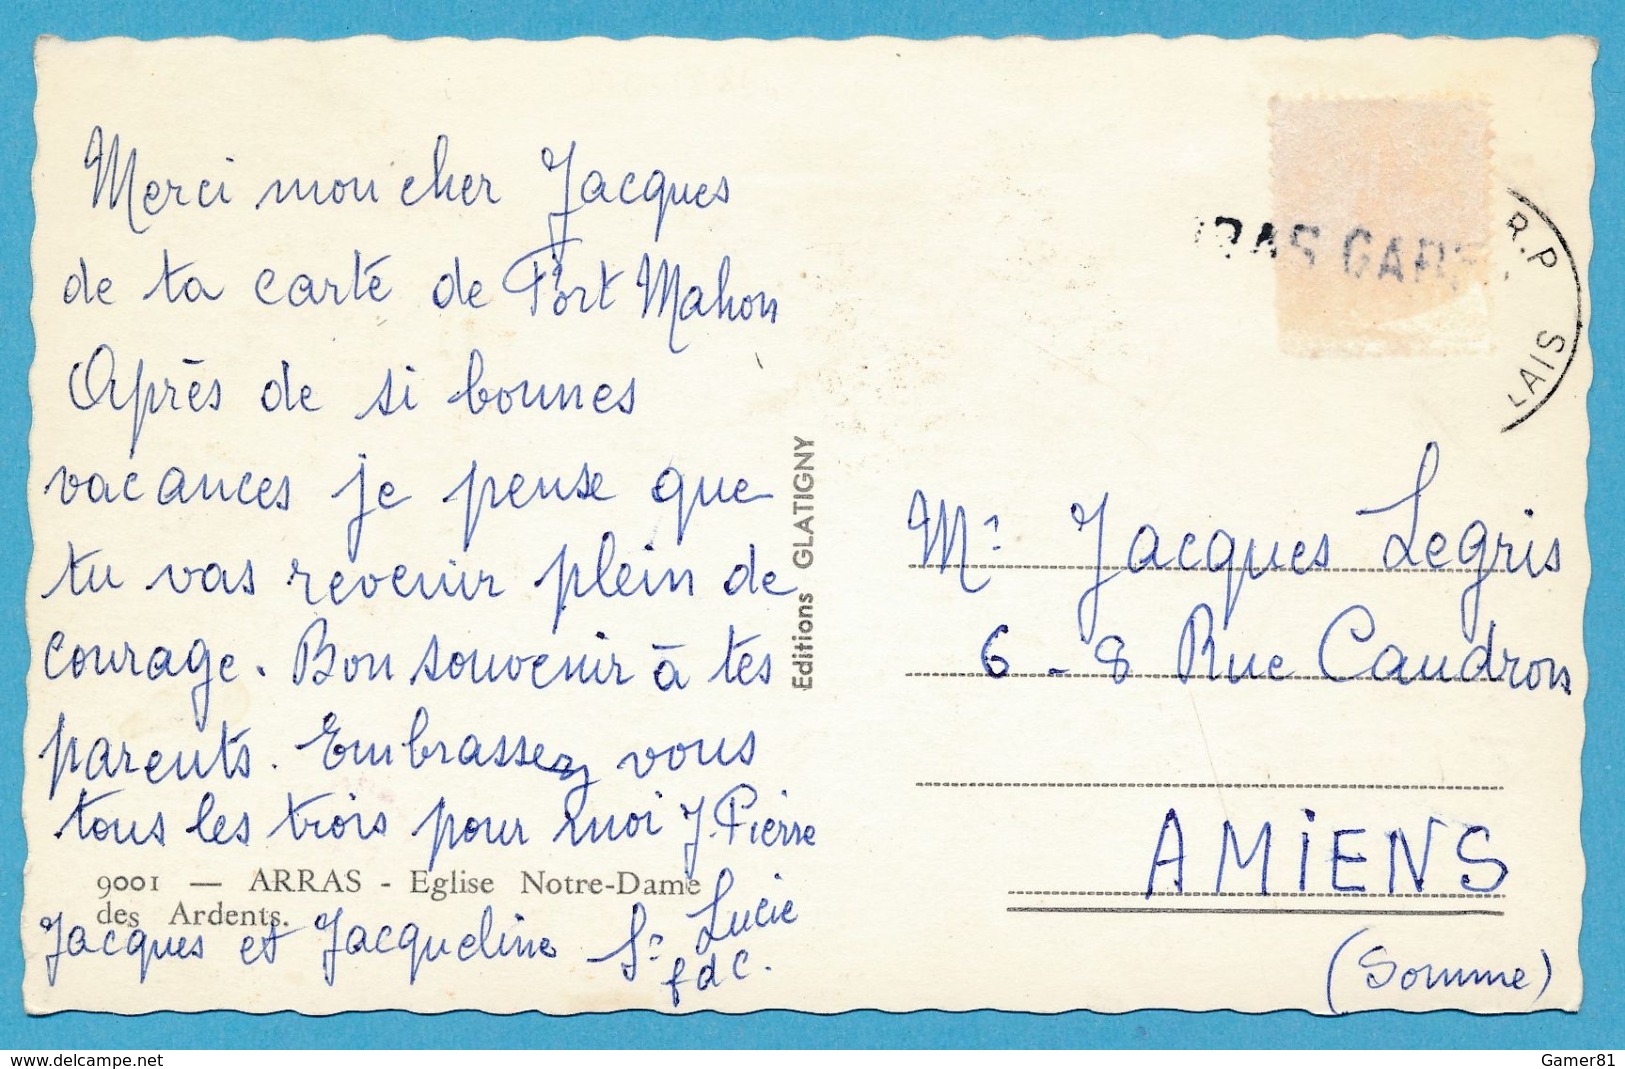 Merci mon cher Jacques
de ta carte de Fort Mahon
Après de si bonnes
vacances je pense que
tu vas revenir plein de
courage. Bon souvenir à tes
parents. Embrassez vous
tous les trois pour moi J. Pierre
9001 — ARRAS - Eglise Notre-Dame
des Ardents.
Jacques et Jacqueline Sr Lucie
fdc.
Editions GLATIGNY
RAS GARE
R.P
LAIS
Mr Jacques Legris
6 - 8 Rue Caudron
AMIENS
(Somme)
www.delcampe.net
Gamer81